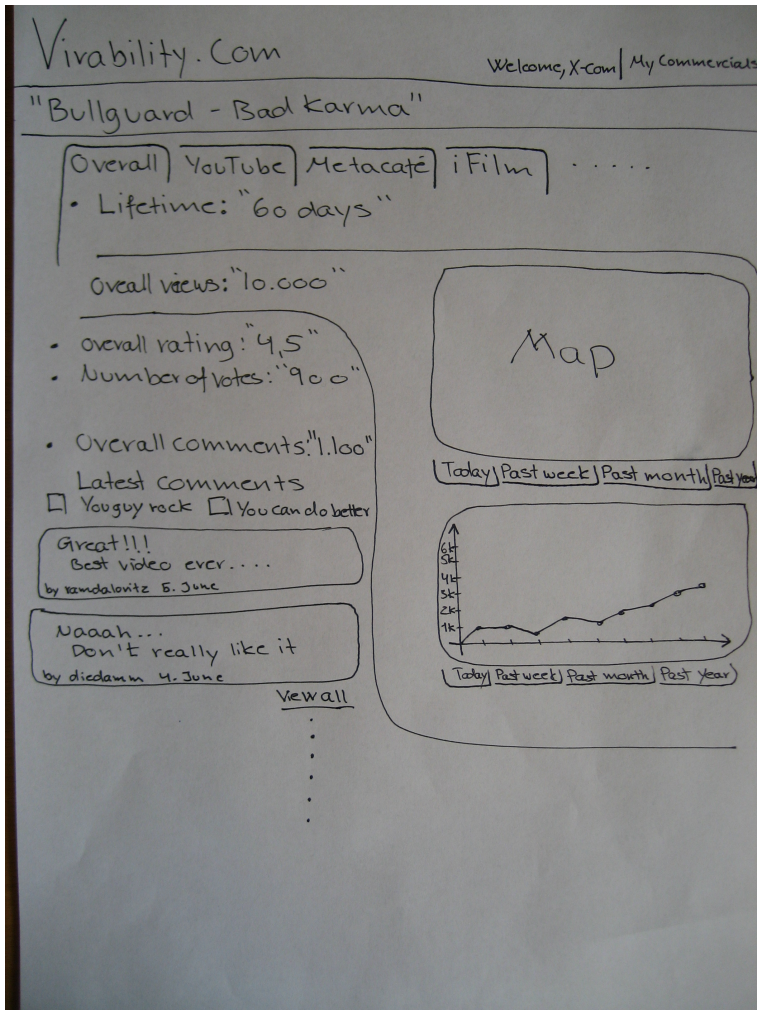 Virability.Com
Welcome, X-com | My Commercials
"Bullguard - Bad Karma"
Overall YouTube Metacafé iFilm .....
• Lifetime: "60 days"
Oveall views: "10.000"
• overall rating: "4,5"
• Number of votes: "900"
• Overall comments: "1.100"
Latest comments
You guy rock You can do better
Great!!!
Best video ever....
by ramdalovitz 5. June
Naaah...
Don't really like it
by diedamm 4. June
View all
Map
Today Past week Past month Past year
6k
5k
4k
3k
2k
1k
Today Past week Past month Past Year